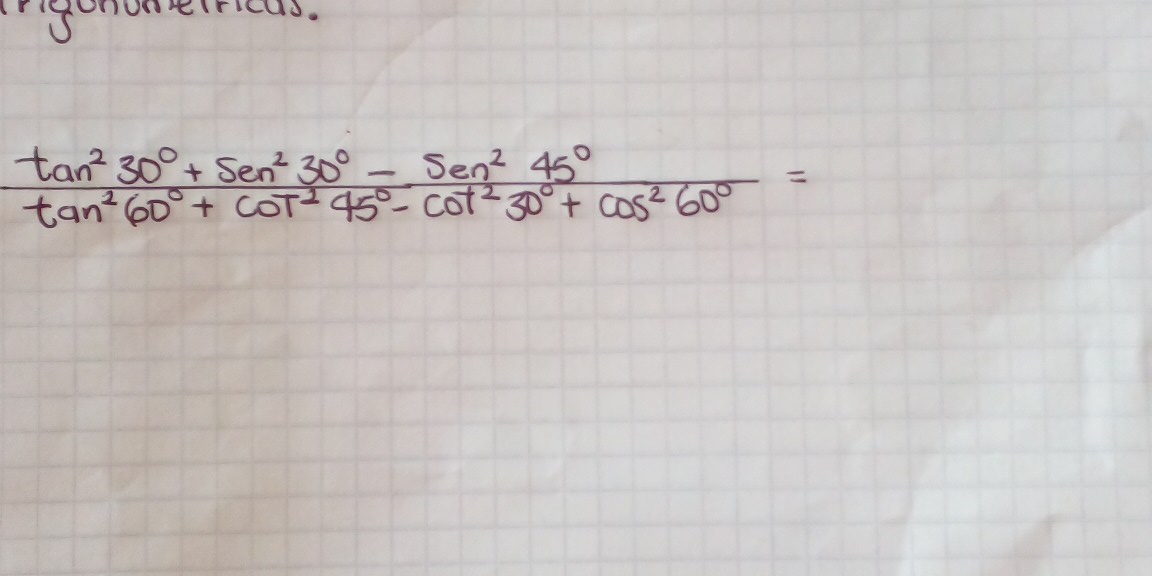 trigonometricas.
tan² 30° + Sen² 30° - Sen² 45° =
tan² 60° + COT² 45° - COT² 30° + COS² 60°